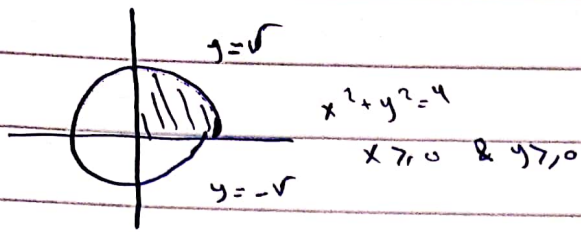 y = √
x² + y² = 4
x ≥ 0 & y ≥ 0
y = -√